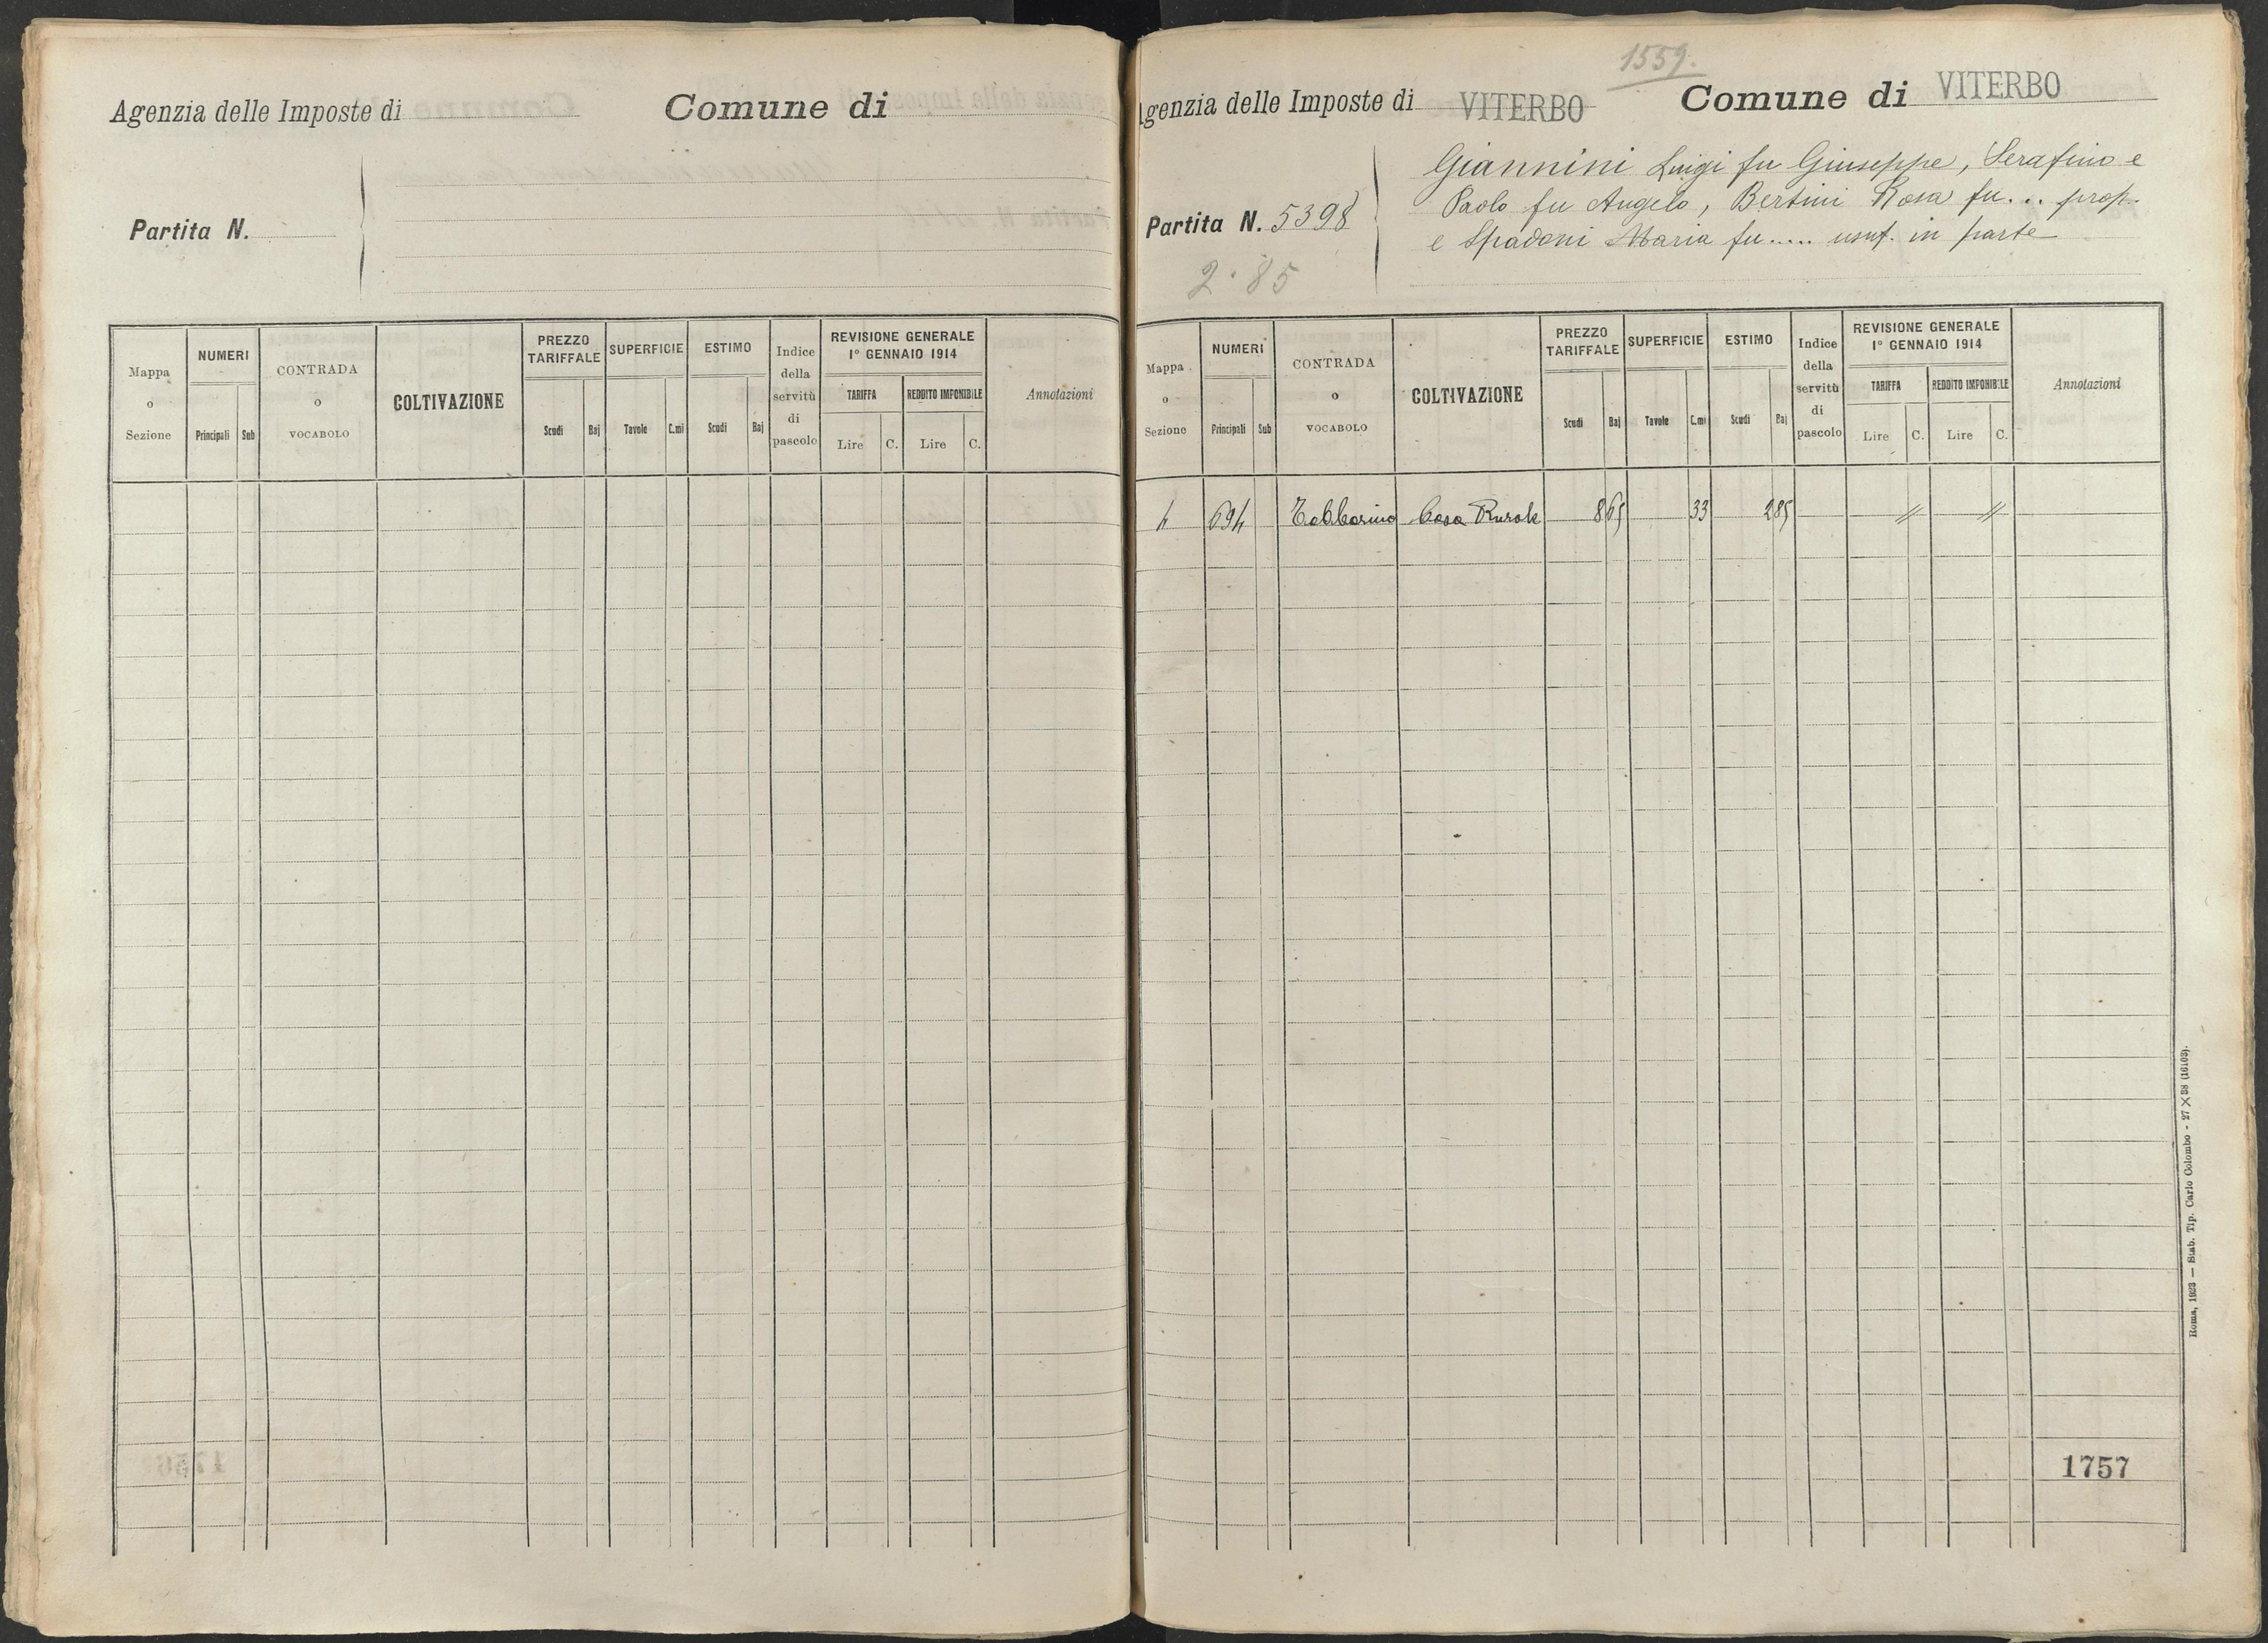 Agenzia delle Imposte di
Comune di
Partita N.
Mappa o Sezione
NUMERI
Principali
Sub
CONTRADA o VOCABOLO
COLTIVAZIONE
PREZZO TARIFFALE
Scudi
Baj
SUPERFICIE
Tavole
C.mi
ESTIMO
Scudi
Baj
Indice della servitù di pascolo
REVISIONE GENERALE
1° GENNAIO 1914
TARIFFA
Lire
C.
REDDITO IMPONIBILE
Lire
C.
Annotazioni
1559.
genzia delle Imposte di VITERBO
Comune di VITERBO
Giannini Luigi fu Giuseppe, Serafino e
Paolo fu Angelo, Bertini Rosa fu... prop.
e Spadoni Maria fu..... usuf. in parte
Partita N. 5398
2.85
Mappa o Sezione
NUMERI
Principali
Sub
CONTRADA o VOCABOLO
COLTIVAZIONE
PREZZO TARIFFALE
Scudi
Baj
SUPERFICIE
Tavole
C.mi
ESTIMO
Scudi
Baj
Indice della servitù di pascolo
REVISIONE GENERALE
1° GENNAIO 1914
TARIFFA
Lire
C.
REDDITO IMPONIBILE
Lire
C.
Annotazioni
4 694 Casa Rurale 865 33 285 // //
1757
Roma, 1923 — Stab. Tip. Carlo Colombo - 27 X 38 (16103).